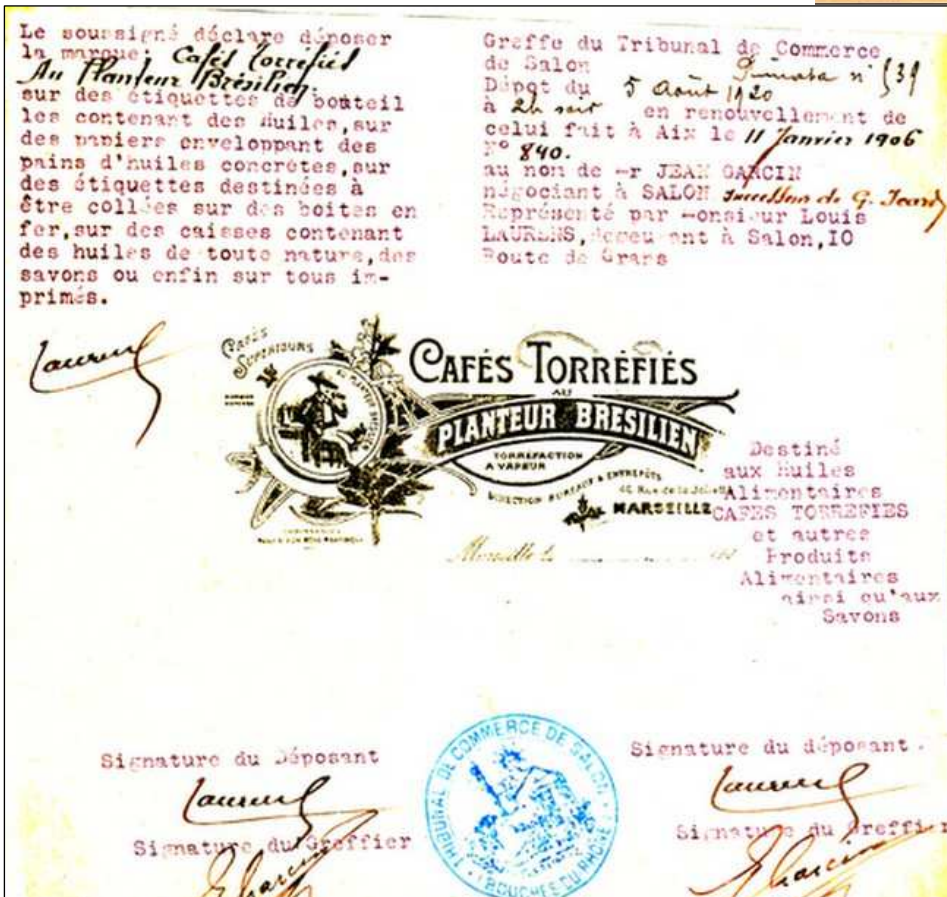 Le soussigné déclare déposer
la marque: Cafés Torréfiés
Au Planteur Brésilien
sur des étiquettes de bouteil
les contenant des Huiles, sur
des papiers enveloppant des
pains d'huiles concrètes, sur
des étiquettes destinées à
être collées sur des boites en
fer, sur des caisses contenant
des huiles de toute nature, des
savons ou enfin sur tous im-
primés.
Greffe du Tribunal de Commerce
de Salon
n° 539
Dépot du 5 Août 1920
à 2h soir en renouvellement de
celui fait à Aix le 11 Janvier 1906
N° 840.
au non de Mr JEAN GARCIN
négociant à SALON successeur de G. Icard
Représenté par Monsieur Louis
LAURENS, demeurant à Salon, IO
Route de Grans
Laurens
CAFÉS
SUPÉRIEURS
AU PLANTEUR BRESILIEN
CAFÉS TORRÉFIÉS
AU
PLANTEUR BRESILIEN
TORREFACTION
A VAPEUR
DIRECTION BUREAUX & ENTREPÔTS
Rue de la Joliette
MARSEILLE
Marseille le
Destiné
aux Huiles
Alimentaires
CAFES TORREFIES
et autres
Produits
Alimentaires
ainsi qu'aux
Savons
Signature du Déposant
Laurens
Signature du Greffier
TRIBUNAL DE COMMERCE DE SALON
BOUCHES DU RHÔNE
Signature du déposant.
Laurens
Signature du Greffier